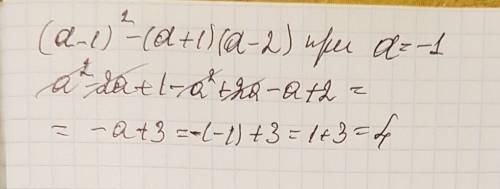 (a-1)² - (a+1)(a-2) при a = -1
a² - 2a + 1 - a² + 2a - a + 2 =
= -a + 3 = -(-1) + 3 = 1 + 3 = 4